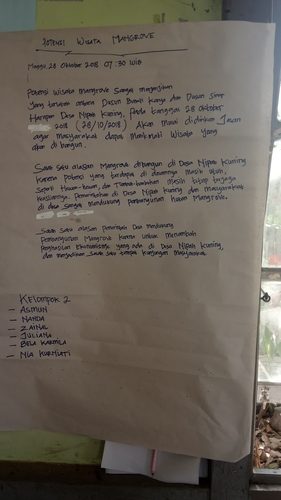 POTENSI WISATA MANGROVE
Minggu, 28 Oktober 2018 07:30 WIB
Potensi wisata mangrove sangat menjanjikan
yang terletak antara Dusun Bakti Karya dan Dusun Sinar
Harapan Desa Nipah Kuning, Pada tanggal 28 Oktober
2018 (28/10/2018) Akan mulai didirikan
agar masyarakat dapat menikmati wisata yang
akan di bangun.
Salah satu alasan Mangrove dibangun di Desa Nipah Kuning
karena potensi yang terdapat di dalamnya masih utuh,
seperti Hewan-hewan, dan Tumbuh-tumbuhan masih tetap terjaga
keasliannya. Pemerintahan di Desa Nipah Kuning dan Masyarakat
di desa sangat mendukung pembangunan hutan Mangrove.
Salah satu alasan pemerintah Desa mendukung
Pembangunan Mangrove karena untuk menambah
Penghasilan Ekonomi yang ada di Desa Nipah Kuning,
dan menjadikan salah satu tempat kunjungan Masyarakat
KELOMPOK 2
- ASMUN
- NANDA
- ZAINAL
- JULIANA
- BELA KARMILA
- NIA KURNIATI